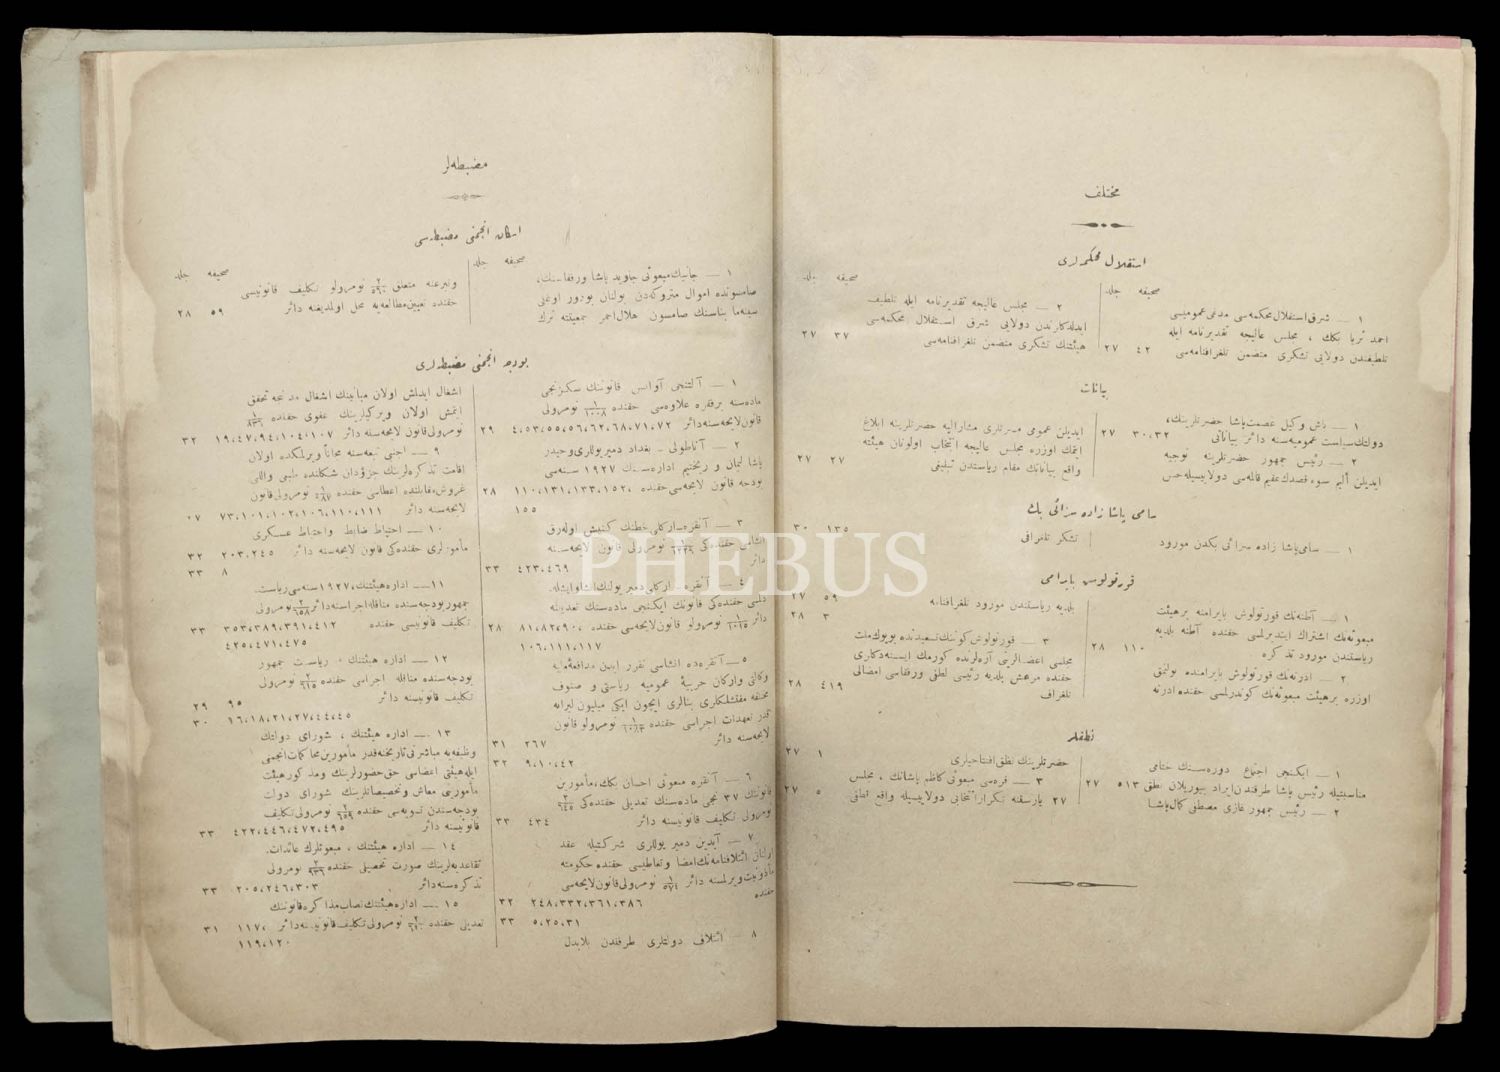 مختلف
استقلال محکمه‌لری
صحیفه جلد
١ — شرق استقلال محکمه‌سی مدعی عمومیسی
احمد ثریا بكك ، مجلس عالیجه تقدیرنامه ایله
تلطیفندن دولایی تشکری متضمن تلغرافنامه‌سی ٤٢ ٢٧
صحیفه جلد
٢ — مجلس عالیجه تقدیرنامه ایله تلطیف
ایدلدکلرندن دولایی شرق استقلال محکمه‌سی
هیئتنك تشکری متضمن تلغرافنامه‌سی ٣٧ ٢٧
بیانات
١ — باش وکیل عصمت پاشا حضرتلرینك،
دولتك سیاست عمومیه‌سنه دائر بیاناتی ٣٠،٣٢ ٢٧
٢ — رئیس جمهور حضرتلرینه توجیه
ایدیلن الیم سوء قصدك عقیم قالمه‌سی دولاییسیله حس
ایدیلن عمومی مسرتلری مشارالیه حضرتلرینه ابلاغ
ایتمك اوزره مجلس عالیجه انتخاب اولونان هیئته
واقع بیاناتك مقام ریاستدن تبلیغی ٢٧ ٢٧
سامی پاشا زاده سزائی بك
١ — سامی پاشا زاده سزائی بكدن مورود
تشکر تلغرافی ١٣٥ ٣٠
قورتولوش بایرامی
١ — آطنه‌نك قورتولوش بایرامنه برهیئت
مبعوثه‌نك اشتراك ایتدیرلسی حقنده آطنه بلدیه
ریاستندن مورود تذکره ١١٠ ٢٨
٢ — ادرنه‌نك قورتولوش بایرامنده بولنمق
اوزره برهیئت مبعوثه‌نك کوندرلسی حقنده ادرنه
بلدیه ریاستندن مورود تلغرافنامه ٥٩ ٢٧
٣ ٢٨
٣ — قورتولوش کوننك تسعیدنده بویوك ملت
مجلسی اعضالرینی آره‌لرنده کورمك ایسته‌دکلری
حقنده مرعش بلدیه رئیسی لطفی ورفقاسی امضالی
تلغراف ٤١٩ ٢٨
نطقلر
١ — ایکنجی اجتماع دوره‌سنك ختامی
مناسبتیله رئیس پاشا طرفندن ایراد بیوریلان نطق ٥١٣ ٢٧
٢ — رئیس جمهور غازی مصطفی کمال پاشا
حضرتلرینك نطق افتتاحیلری ١ ٢٧
٣ — قره‌سی مبعوثی کاظم پاشانك ، مجلس
ریاستنه تکرار انتخابی دولاییسیله واقع نطقی ٥ ٢٧
مضبطه‌لر
اسکان انجمنی مضبطه‌سی
صحیفه جلد
١ — جانیك مبعوثی جاوید پاشا ورفقاسنك،
صامسونده اموال متروکه‌دن بولنان بودور اوغلی
سینه‌ما بناسنك صامسون هلال احمر جمعیتنه ترك
صحیفه جلد
وتبرعنه متعلق نومرولو تکلیف قانونیسی
حقنده تعیین مطالعه‌یه محل اولمدیغنه دائر ٥٩ ٢٨
بودجه انجمنی مضبطه‌لری
١ — آلتنجی آوانس قانوننك سکزنجی
ماده‌سنه برفقره علاوه‌سی حقنده ١/١٠٠٨ نومرولی
قانون لایحه‌سنه دائر ٤،٥٣،٥٥،٥٦،٦٢،٦٨،٧١،٧٢ ٢٩
٢ — آناطولی - بغداد دمیریوللری وحیدر
پاشا لیمان و ریختیم اداره‌سنك ١٩٢٧ سنه‌سی
بودجه قانون لایحه‌سی حقنده ١١٠،١٣١،١٣٣،١٥٢، ٢٨
١٥٥
٣ — آنقره - ارکلی خطنك کنیش اوله‌رق
انشاسی حقنده‌کی نومرولی قانون لایحه‌سنه
دائر ٤٢٣،٤٦٩ ٣٣
٤ — آنقره - ارکلی دمیر یولنك انشا وایشله-
دلمسی حقنده‌کی قانونك ایکنجی ماده‌سنك تعدیلنه
دائر نومرولو قانون لایحه‌سی حقنده ٨١،٨٢،٩٠، ٢٨
١٠٦،١١١،١١٧
٥ — آنقره‌ده انشاسی تقرر ایدن مدافعهٔ ملیه
وکالتی وارکان حربیهٔ عمومیه ریاستی و صنوف
مختلفه مفتشلکلری بنالری ایچون ایکی میلیون لیرایه
قدر تعهدات اجراسی حقنده نومرولو قانون
لایحه‌سنه دائر ٢٦٧ ٣١
٩،١٠،٤٢ ٣٢
٦ — آنقره مبعوثی احسان بكك، مأمورین
قانوننك ٣٧ نجی ماده‌سنك تعدیلی حقنده‌کی ٢/٦٤٥
نومرولی تکلیف قانونیسنه دائر ٤٣٤ ٣٣
٧ — آیدین دمیر یوللری شرکتیله عقد
اولنان ائتلافنامه‌نك امضا وتعاطیسی حقنده حکومته
مأذونیت ویرلمسنه دائر نومرولی قانون لایحه‌سی
حقنده ٢٤٨،٣٣٢،٣٦١،٣٨٦ ٣٢
٥،٢٥،٣١ ٣٣
٨ — ائتلاف دولتلری طرفندن بلابدل
اشغال ایدلش اولان مبانینك اشغال مدتنجه تحقق
ایتمش اولان ویرکیلرینك عفوی حقنده ١/٨٣٦
نومرولی قانون لایحه‌سنه دائر ١٩،٤٧،٩٤،١٠٤،١٠٧ ٣٢
٩ — اجنبی تبعه‌سنه مجاناً ویرلمکده اولان
اقامت تذکره‌لرینك جزؤدان شکلنده طبعی واللی
غروش مقابلنده اعطاسی حقنده نومرولی قانون
لایحه‌سنه دائر ٧٣،١٠١،١٠٢،١٠٦،١١٠،١١١ ٠٧
١٠ — احتیاط ضابط واحتیاط عسکری
مأمورلری حقنده‌کی قانون لایحه‌سنه دائر ٢٠٣،٢٤٥ ٣٢
٨ ٣٣
١١ — اداره هیئتنك، ١٩٢٧ سنه‌سی ریاست
جمهور بودجه‌سنده مناقله اجراسنه دائر ٢/٦٥٨ نومرولی
تکلیف قانونیسی حقنده ٣٥٣،٣٨٩،٣٩١،٤١٢ ٣٣
٤٢٥،٤٧١،٤٧٥
١٢ — اداره هیئتنك ، ریاست جمهور
بودجه‌سنده مناقله اجراسی حقنده ٢/٦١٥ نومرولی
تکلیف قانونیسنه دائر ٩٥ ٢٩
١٦،١٨،٢١،٢٧،٤٤،٤٥ ٣٠
١٣ — اداره هیئتنك ، شورای دولتك
وظیفه‌یه مباشرتی تاریخنه قدر مأمورین محاکمات انجمنی
ایله هیئتی اعضاسی حق حضورلرینك ومذکور هیئت
مأمورسی معاش وتخصیصاتلرینك شورای دولت
بودجه‌سندن تسویه‌سی حقنده ٢/٦٥٩ نومرولی تکلیف
قانونیسنه دائر ٤٢٢،٤٤٦،٤٧٢،٤٩٥ ٣٣
١٤ — اداره هیئتنك ، مبعوثلرك عائدات
تقاعدیه‌لرینك صورت تحصیلی حقنده نومرولی
تذکره‌سنه دائر ٢٠٥،٢٤٦،٣٠٣ ٣٣
١٥ — اداره هیئتنك نصاب مذاکره قانوننك
تعدیلی حقنده نومرولی تکلیف قانونیسنه دائر ١١٧، ٣١
١١٩،١٢٠
PHEBUS